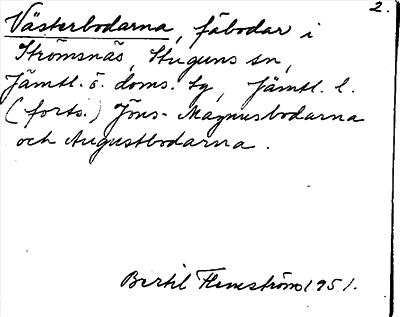 2.
Västerbodarna, fäbodar i
Strömsnäs, Stuguns sn,
Jämtl. ö. doms. tg, Jämtl. l.
(forts.) Jöns-Magnusbodarna
och Augustbodarna.
Bertil Flemström 1951.